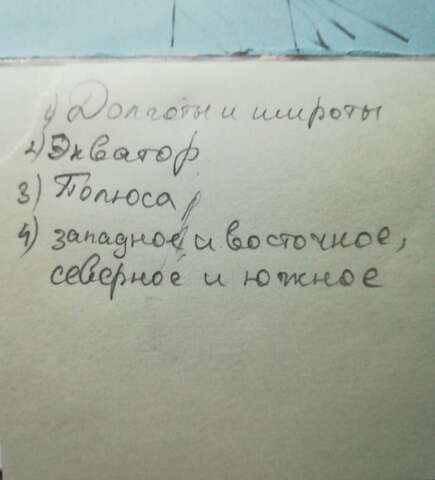 1) Долготы и широты
2) Экватор
3) Полюса
4) западное и восточное,
северное и южное